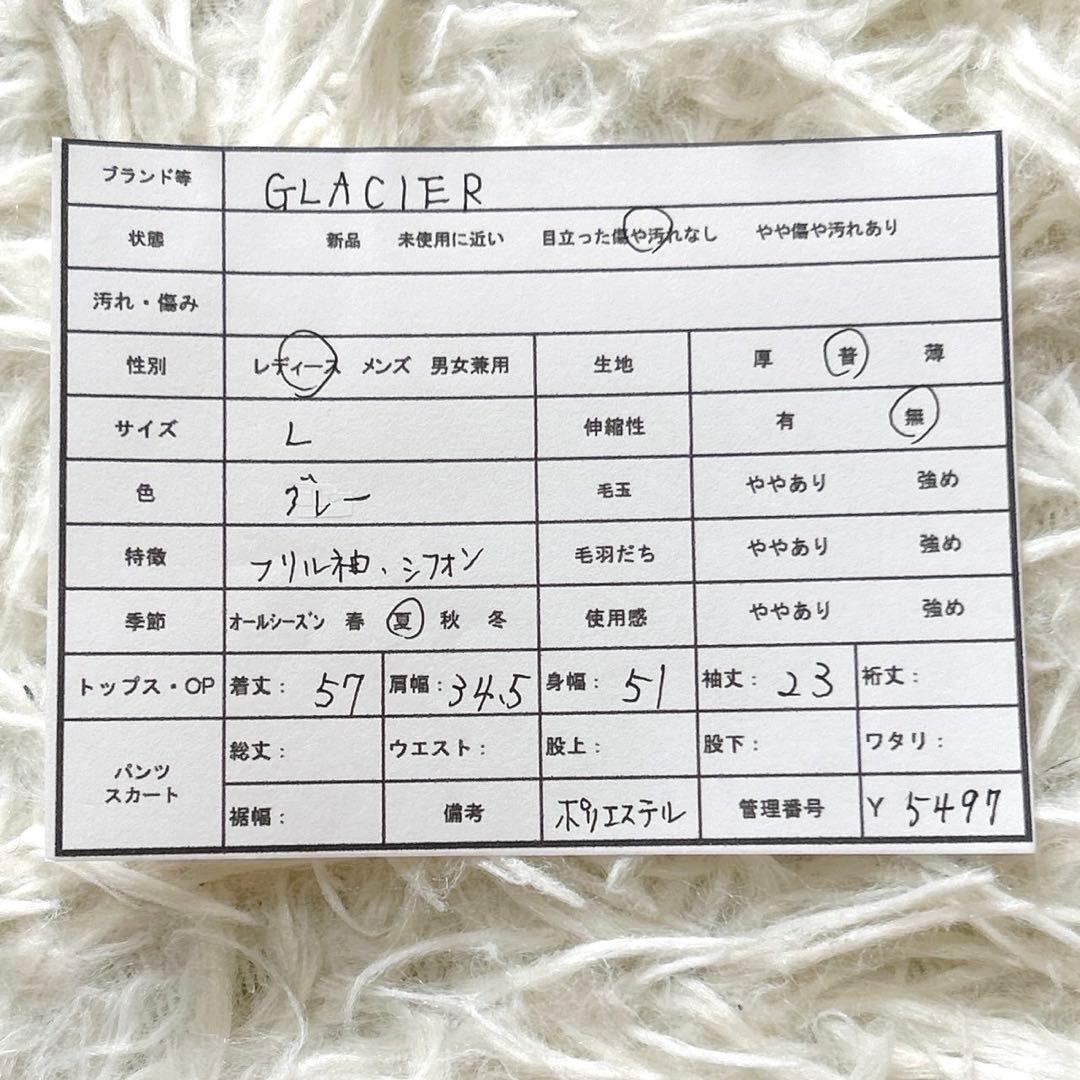 ブランド等 GLACIER
状態 新品 未使用に近い 目立った傷や汚れなし やや傷や汚れあり
汚れ・傷み
性別 レディース メンズ 男女兼用 生地 厚 普 薄
サイズ L 伸縮性 有 無
色 グレー 毛玉 ややあり 強め
特徴 フリル袖、シフォン 毛羽だち ややあり 強め
季節 オールシーズン 春 夏 秋 冬 使用感 ややあり 強め
トップス・OP 着丈: 57 肩幅: 34.5 身幅: 51 袖丈: 23 裄丈:
パンツ
スカート
総丈: ウエスト: 股上: 股下: ワタリ:
裾幅: 備考 ポリエステル 管理番号 Y 5497